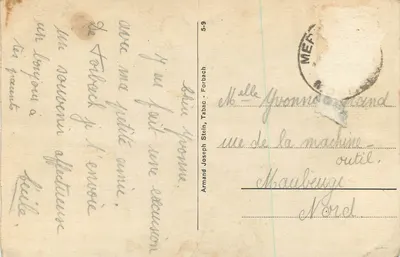 Chère Yvonne.
J'ai fait une excursion
avec ma petite amie.
De Forbach je t'envoie
un souvenir affectueuse
un bonjour à
tes parents
Cécile
5-9
Armand Joseph Stein, Tabac - Forbach
MER
Melle Yvonne
rue de la machine-
outil.
Maubeuge
Nord